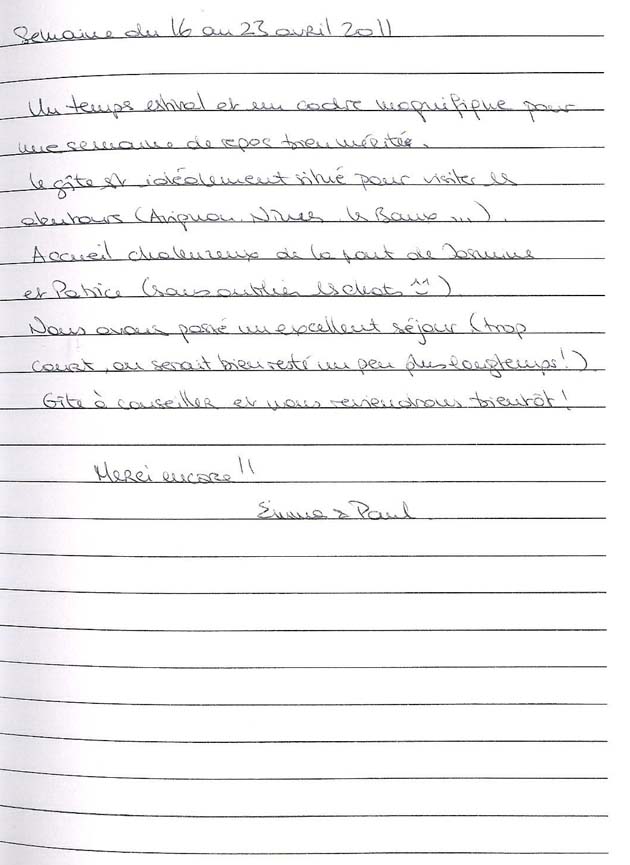 Semaine du 16 au 23 avril 2011
Un temps estival et un cadre magnifique pour
une semaine de repos bien méritée.
Le gîte est idéalement situé pour visiter les
alentours (Avignon, Nîmes, les Baux ...).
Accueil chaleureux de la part de
et Patrice (sans oublier les chats ^^)
Nous avons passé un excellent séjour (trop
court, on serait bien resté un peu plus longtemps!)
Gîte à conseiller et nous reviendrons bientôt!
Merci encore!!
& Paul